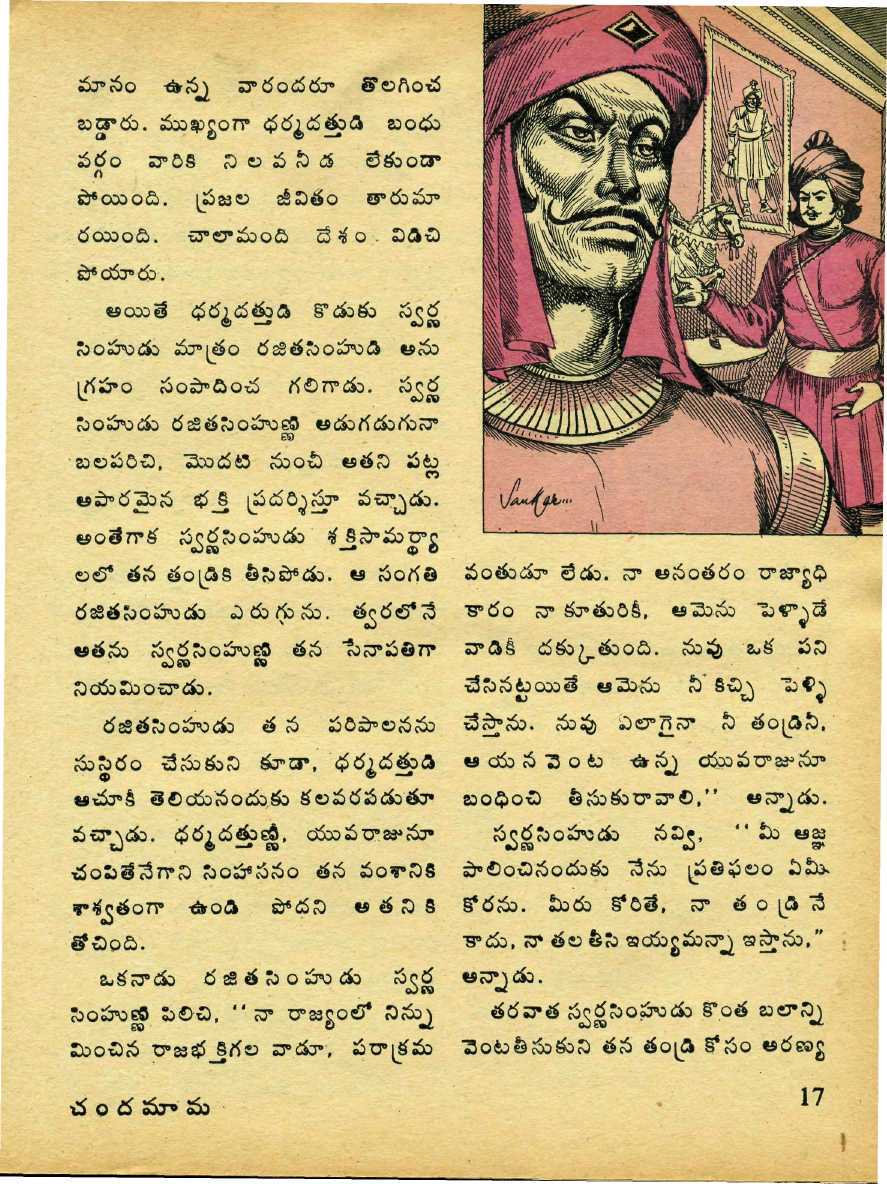 మానం ఉన్న వారందరూ తొలగించ
బడ్డారు. ముఖ్యంగా ధర్మదత్తుడి బంధు
వర్గం వారికి నిలవనీడ లేకుండా
పోయింది. ప్రజల జీవితం తారుమా
రయింది. చాలామంది దేశం విడిచి
పోయారు.
అయితే ధర్మదత్తుడి కొడుకు స్వర్ణ
సింహుడు మాత్రం రజితసింహుడి అను
గ్రహం సంపాదించ గలిగాడు. స్వర్ణ
సింహుడు రజితసింహుణ్ణి అడుగడుగునా
బలపరిచి, మొదటి నుంచీ అతని పట్ల
అపారమైన భక్తి ప్రదర్శిస్తూ వచ్చాడు.
అంతేగాక స్వర్ణసింహుడు శక్తిసామర్థ్యా
లలో తన తండ్రికి తీసిపోడు. ఆ సంగతి
రజితసింహుడు ఎరుగును. త్వరలోనే
అతను స్వర్ణసింహుణ్ణి తన సేనాపతిగా
నియమించాడు.
రజితసింహుడు తన పరిపాలనను
సుస్థిరం చేసుకుని కూడా, ధర్మదత్తుడి
ఆచూకీ తెలియనందుకు కలవరపడుతూ
వచ్చాడు. ధర్మదత్తుణ్ణీ, యువరాజునూ
చంపితేనేగాని సింహాసనం తన వంశానికి
శాశ్వతంగా ఉండి పోదని అతనికి
తోచింది.
ఒకనాడు రజితసింహుడు స్వర్ణ
సింహుణ్ణి పిలిచి, ‘‘నా రాజ్యంలో నిన్ను
మించిన రాజభక్తిగల వాడూ, పరాక్రమ
Sanker...
వంతుడూ లేడు. నా అనంతరం రాజ్యాధి
కారం నా కూతురికీ, ఆమెను పెళ్ళాడే
వాడికీ దక్కుతుంది. నువు ఒక పని
చేసినట్టయితే ఆమెను నీ కిచ్చి పెళ్ళి
చేస్తాను. నువు ఏలాగైనా నీ తండ్రినీ,
ఆయనవెంట ఉన్న యువరాజునూ
బంధించి తీసుకురావాలి,’’ అన్నాడు.
స్వర్ణసింహుడు నవ్వి, ‘‘మీ ఆజ్ఞ
పాలించినందుకు నేను ప్రతిఫలం ఏమీ
కోరను. మీరు కోరితే, నా తండ్రినే
కాదు, నా తల తీసి ఇయ్యమన్నా ఇస్తాను,”
అన్నాడు.
తరవాత స్వర్ణసింహుడు కొంత బలాన్ని
వెంటతీసుకుని తన తండ్రి కోసం అరణ్య
చందమామ
17